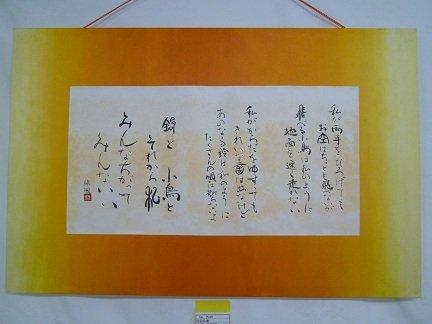 私が両手をひろげても
お空はちっとも飛べないが
飛べる小鳥は私のように
地面を速く走れない
私がからだをゆすっても
きれいな音は出ないけど
あの鳴る鈴は私のように
たくさんの唄は知らないよ
鈴と 小鳥と
それから私
みんなちがって
みんないい